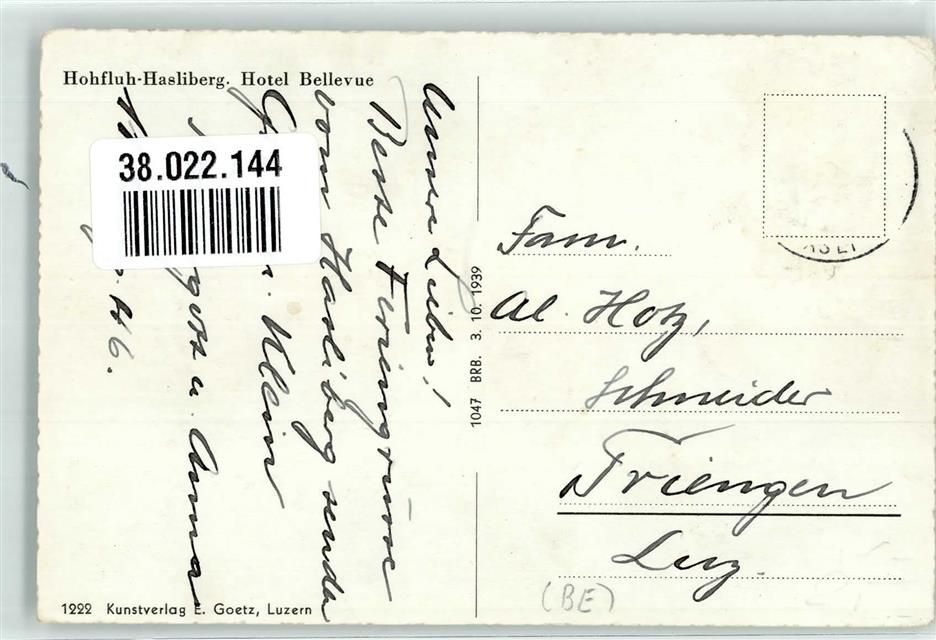 Hohfluh-Hasliberg. Hotel Bellevue
38.022.144
Unsere Lieben!
Beste Feriengrüsse
vom Hasliberg senden
Klein
u. Anna
46.
1047 BRB. 3. 10. 1939
Fam.
Al. Hotz,
Schneider
Triengen
Luz.
(BE)
1222 Kunstverlag E. Goetz, Luzern